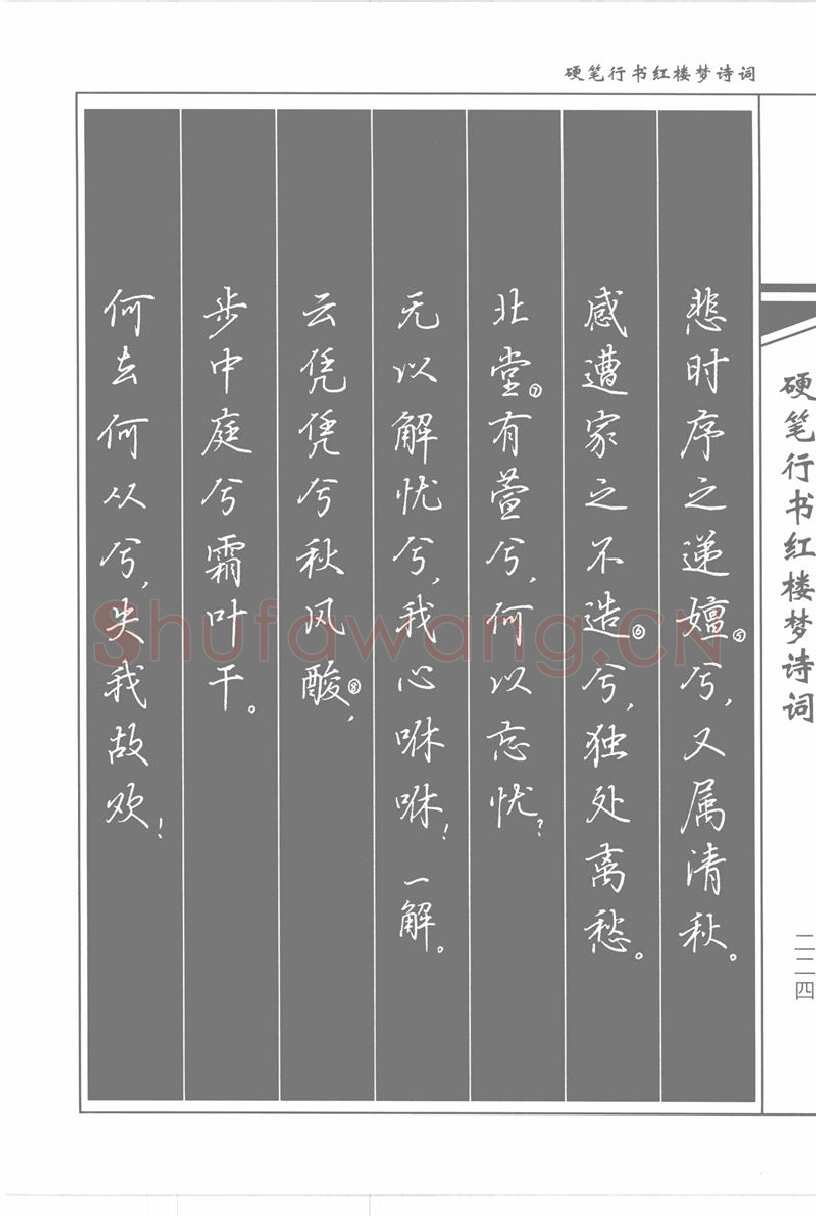 硬笔行书红楼梦诗词
悲时序之递嬗⑤兮，又属清秋。
感遭家之不造⑥兮，独处离愁。
北堂⑦有萱兮，何以忘忧？
无以解忧兮，我心咻咻！一解。
云凭凭兮秋风酸⑧，
步中庭兮霜叶干。
何去何从兮，失我故欢！
硬笔行书红楼梦诗词
二二四
Shufawang.CN